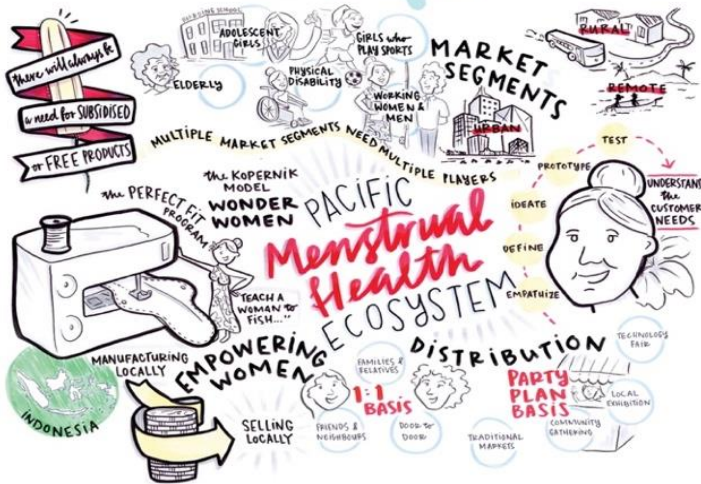 there will always be
a need for SUBSIDISED
or FREE PRODUCTS
ADOLESCENT
GIRLS
GIRLS who
PLAY SPORTS
ELDERLY
PHYSICAL
DISABILITY
WORKING
WOMEN &
MEN
MARKET
SEGMENTS
URBAN
RURAL
REMOTE
MULTIPLE MARKET SEGMENTS NEED MULTIPLE PLAYERS
the KOPERNIK
MODEL
WONDER
WOMEN
the PERFECT FIT
PROGRAM
TEACH A
WOMAN to
FISH..."
PACIFIC
Menstrual
Health
ECOSYSTEM
TEST
PROTOTYPE
IDEATE
DEFINE
EMPATHIZE
UNDERSTAND
the
CUSTOMER
NEEDS
MANUFACTURING
LOCALLY
INDONESIA
EMPOWERING
WOMEN
SELLING
LOCALLY
DISTRIBUTION
FAMILIES &
RELATIVES
1:1
BASIS
FRIENDS &
NEIGHBOURS
DOOR to
DOOR
TRADITIONAL
MARKETS
PARTY
PLAN
BASIS
TECHNOLOGY
FAIR
LOCAL
EXHIBITION
COMMUNITY
GATHERING